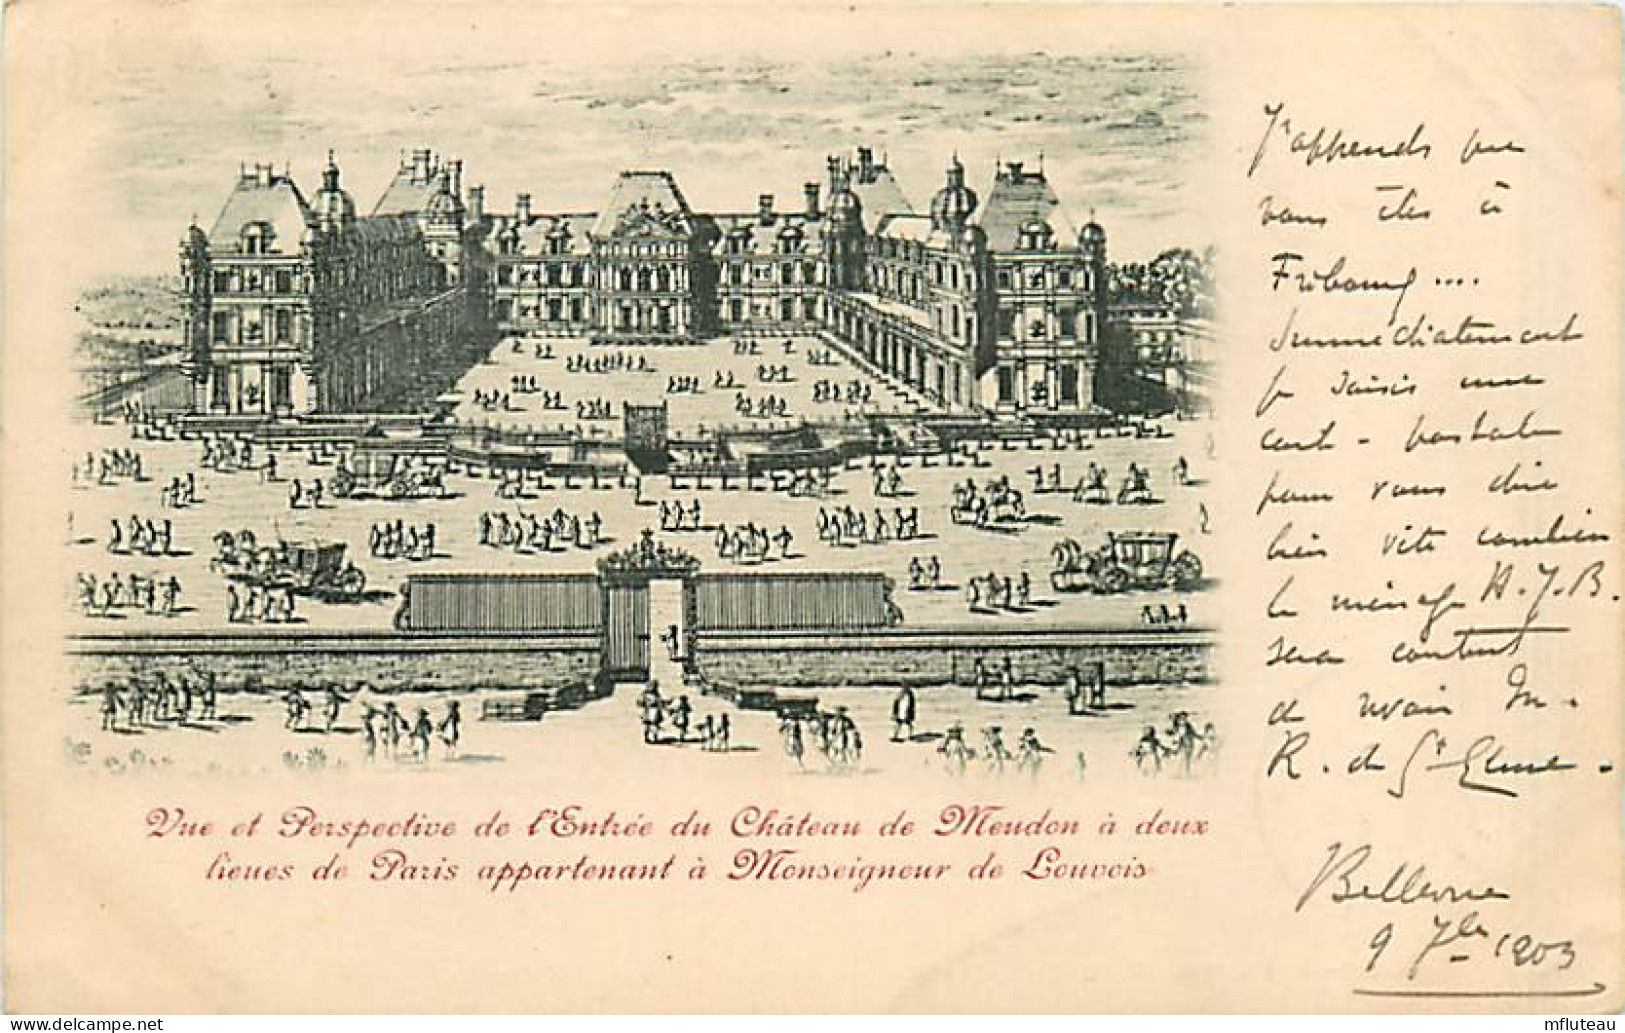 Vue et Perspective de l'Entrée du Château de Meudon à deux
lieues de Paris appartenant à Monseigneur de Louvois
J'apprends que
vous êtes à
Fribourg ....
Immédiatement
je saisis une
carte-postale
pour vous dire
bien vite combien
le ménage H.J.B.
sera content
de revoir M.
R. de St
Bellevue
9 7bre 1903
mfluteau